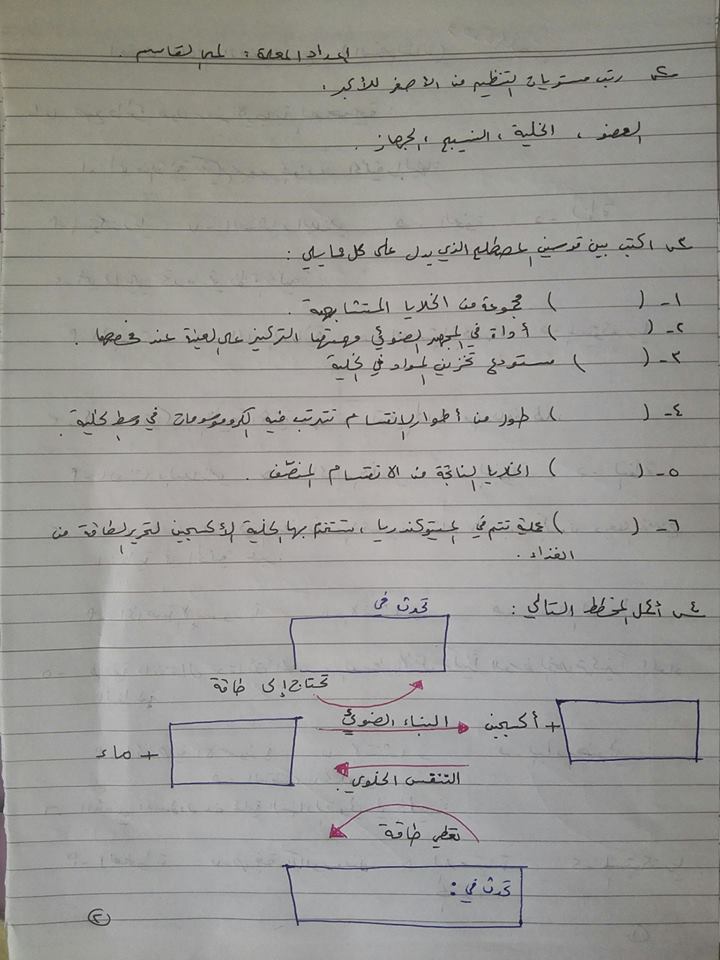 إعداد المعلمة : لمى القاسم .
س٢ رتب مستويات التنظيم من الأصغر للأكبر .
العضو ، الخلية ، النسيج ، الجهاز .
س٣ اكتب بين قوسين المصطلح الذي يدل على كل مما يلي :
١- (          ) مجموعة من الخلايا المتشابهة .
٢- (          ) أداة في المجهر الضوئي ومهمتها التركيز على العينة عند فحصها .
٣- (          ) مستودع تخزين المواد في الخلية
٤- (          ) طور من أطوار الانقسام تترتب فيه الكروموسومات في وسط الخلية .
٥- (          ) الخلايا الناتجة من الانقسام المنصّف .
٦- (          ) عملية تتم في الميتوكندريا ، تستخدم بها الخلية الأكسجين لتحرير الطاقة من
الغذاء .
س٤ أكمل المخطط التالي :
تحدث في
تحتاج إلى طاقة
+ أكسجين
البناء الضوئي
+ ماء
التنفس الخلوي
تعطي طاقة
تحدث في :
٢